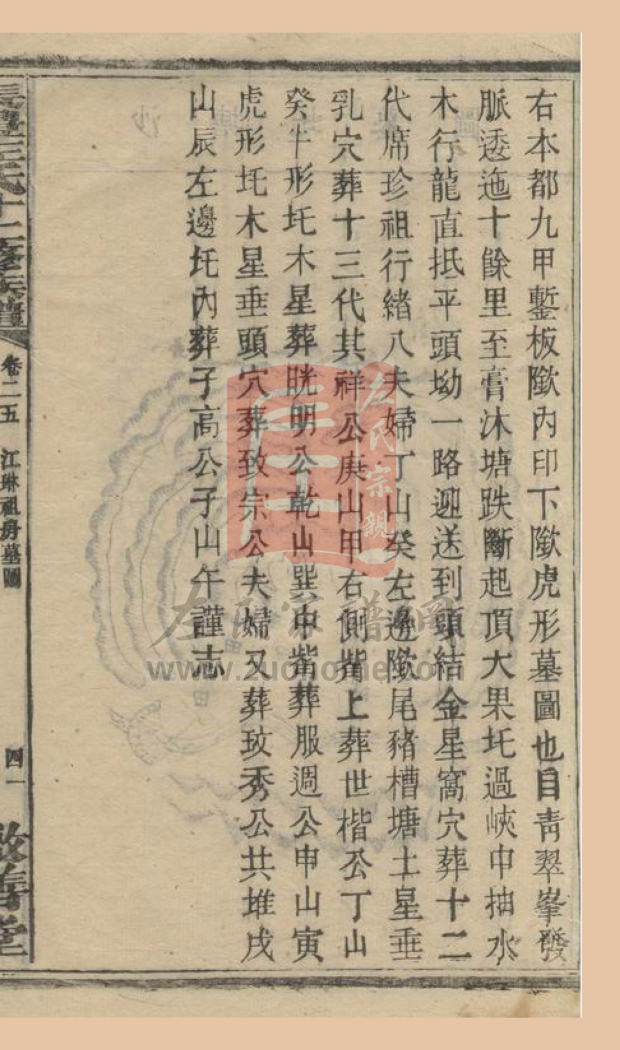 右本都九甲鏨板歘內印下歘虎形墓圖也自青翠峯發
脈逶迤十餘里至膏沐塘跌斷起頂大果圫過峽中抽水
木行龍直抵平頭坳一路迎送到頭結金星窩穴葬十二
代席珍祖行緒八夫婦丁山癸左邊歘尾豬槽塘土星垂
乳穴葬十三代其祥公庚山甲右側嘴上葬世楷公丁山
癸牛形圫木星葬晄明公乾山巽中嘴葬服週公申山寅
虎形圫木星垂頭穴葬致宗公夫婦又葬玫秀公共堆戌
山辰左邊圫內葬子高公子山午謹志
卷二五
江琳祖房墓圖
四一
左氏宗親
www.zuohome.com